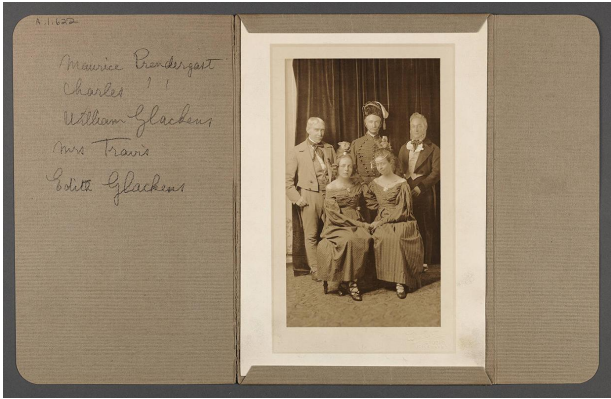 A.1.622
Maurice Prendergast
Charles " "
William Glackens
Mrs Travis
Edith Glackens